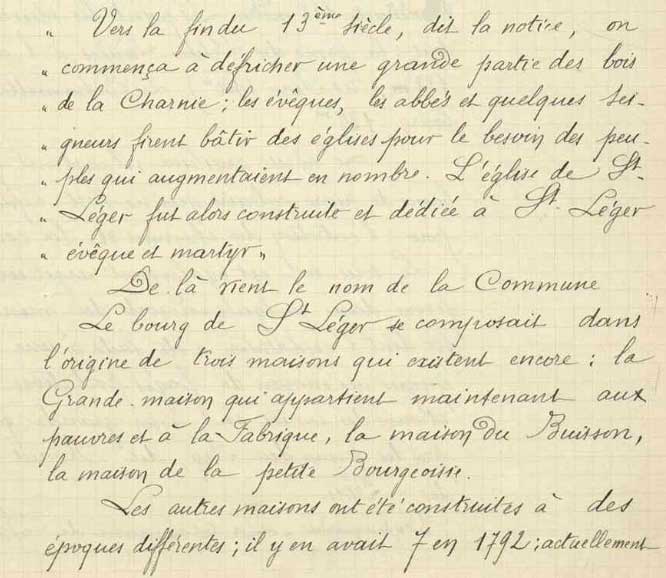 „ Vers la fin du 13ème siècle, dit la notice, on
„ commença à défricher une grande partie des bois
„ de la Charnie ; les évêques, les abbés et quelques sei-
„ gneurs firent bâtir des églises pour le besoin des peu-
„ ples qui augmentaient en nombre. L'église de St-
„ Léger fut alors construite et dédiée à St Léger
„ évêque et martyr „
De là vient le nom de la Commune
Le bourg de St Léger se composait dans
l'origine de trois maisons qui existent encore : la
Grande maison qui appartient maintenant aux
pauvres et à la Fabrique, la maison du Buisson,
la maison de la petite Bourgeoisie.
Les autres maisons ont été construites à des
époques différentes ; il y en avait 7 en 1792 ; actuellement